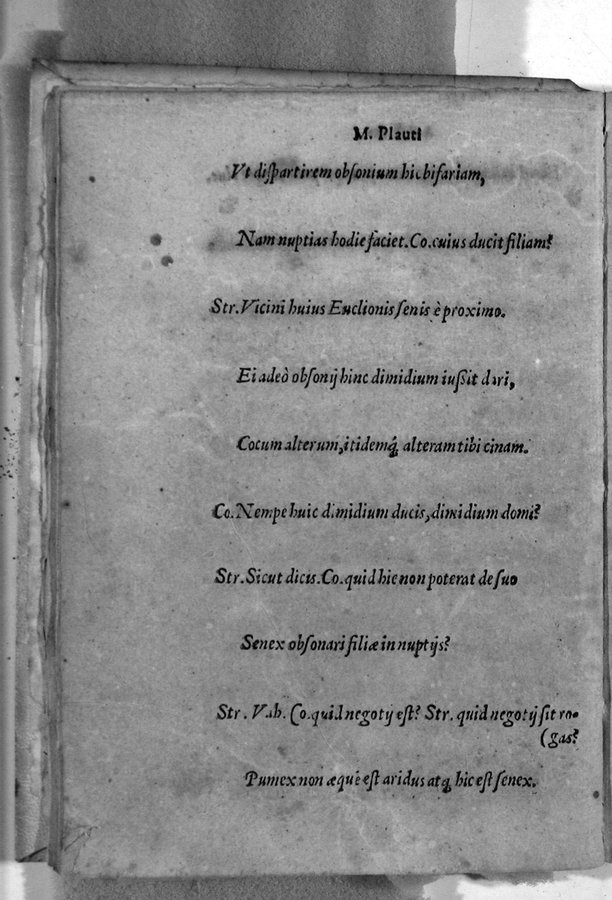 M. Plauti
Vt dispartirem obsonium hic bifariam,
Nam nuptias hodie faciet. Co. cuius ducit filiam?
Str. Vicini huius Euclionis senis è proximo.
Ei adeò obsonij hinc dimidium iussit dari,
Cocum alterum, itidemq́; alteram tibicinam.
Co. Nempe huic dimidium ducis, dimidium domi?
Str. Sicut dicis. Co. quid hic non poterat de suo
Senex obsonari filiæ in nuptijs?
Str. Vah. Co. quid negotij est? Str. quid negotij sit ro-
(gas?
Pumex non æquè est aridus atq; hic est senex.